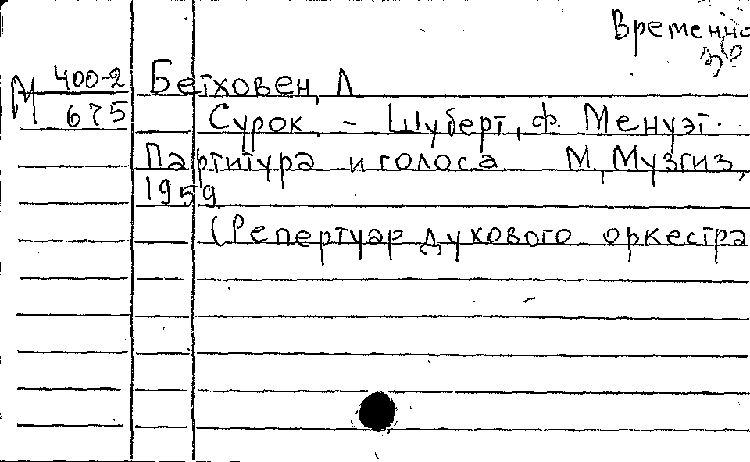 Временно
М 400-2
675
Бетховен, Л
Сурок. - Шуберт, Ф. Менуэт.
Партитура и голоса М, Музгиз,
1959
(Репертуар духового оркестра